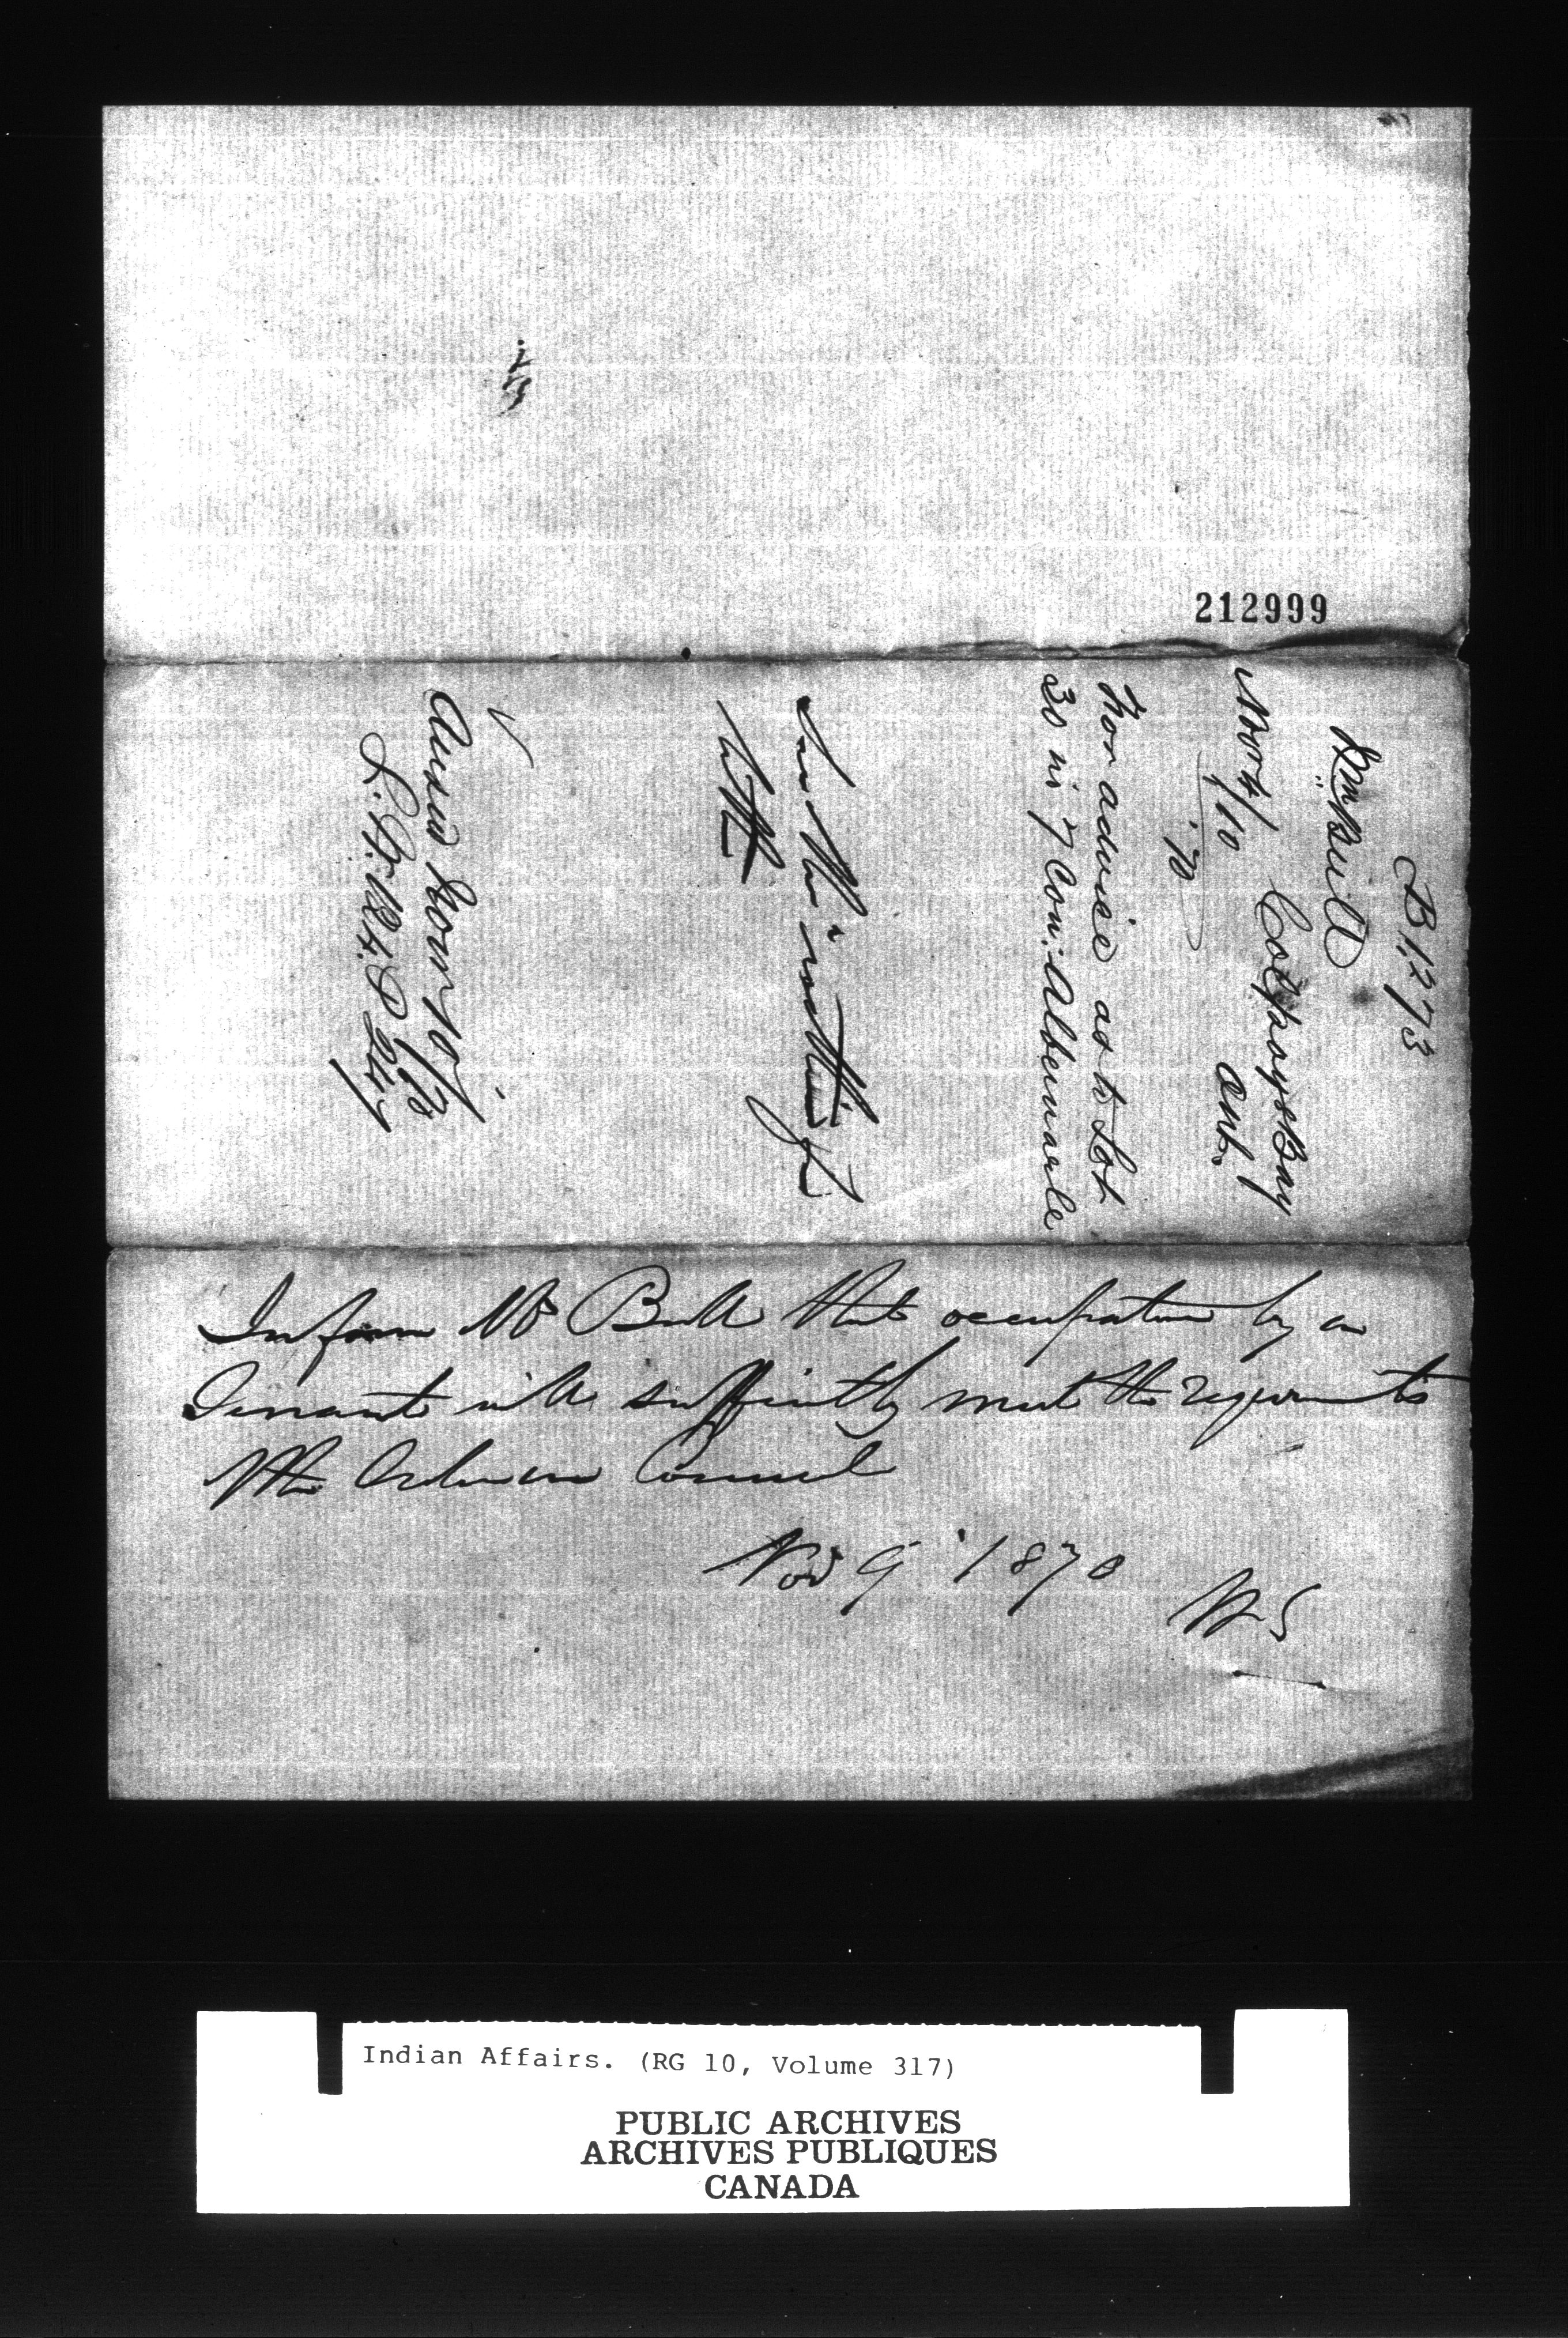 212999
B1273
Wm Bull
Colpoys Bay
Ont.
Nov 4/10
'70
For advice as to Lot
30 in 7 Con: Albemarle
See
with
Answd Nov 10/70
L.
Inform Mr Bull that occupation by a
Tenant will sufficiently meet the requirements
of the Order in Council
Nov 9 1870
Indian Affairs. (RG 10, Volume 317)
PUBLIC ARCHIVES
ARCHIVES PUBLIQUES
CANADA